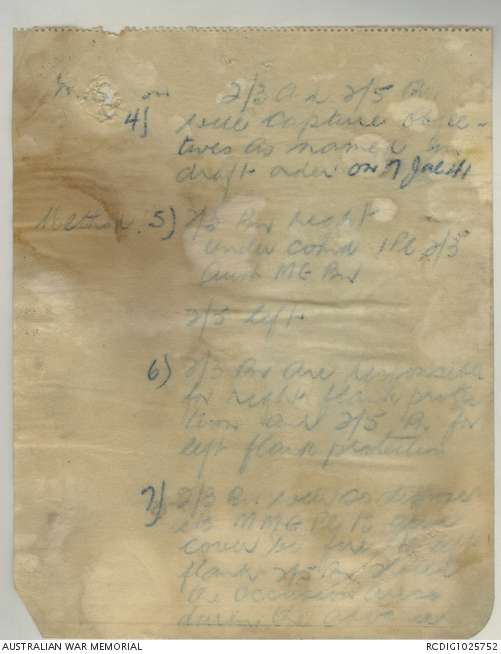 2/3 and 2/5 Bn
4) will capture objec-
tives as named in
draft order on 7 Jul 41
Method 5) 2/3 Bn right
under comd 1 Pl 2/3
Aust MG Bn
2/5 left
6) 2/3 Bn are responsible
for right flank protec
tion and 2/5 Bn for
left flank protection
7) 2/3 Bn will so dispose
its MMG Pl to give
cover by fire to left
flank 2/5 Bn
the
during the
AUSTRALIAN WAR MEMORIAL
RCDIG1025752